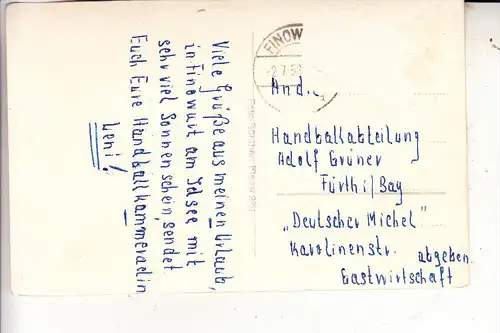 Viele Grüße aus meinen Urlaub,
in Finowurt am Idsee mit
sehr viel Sonnenschein, sendet
Euch Eure Handballkammeradin
Leni!
FINOW
2.7.5
An d.
Handballabteilung
Adolf Grüner
Fürth i/Bay
„Deutscher Michel"
Karolinenstr. abgeben.
Gastwirtschaft